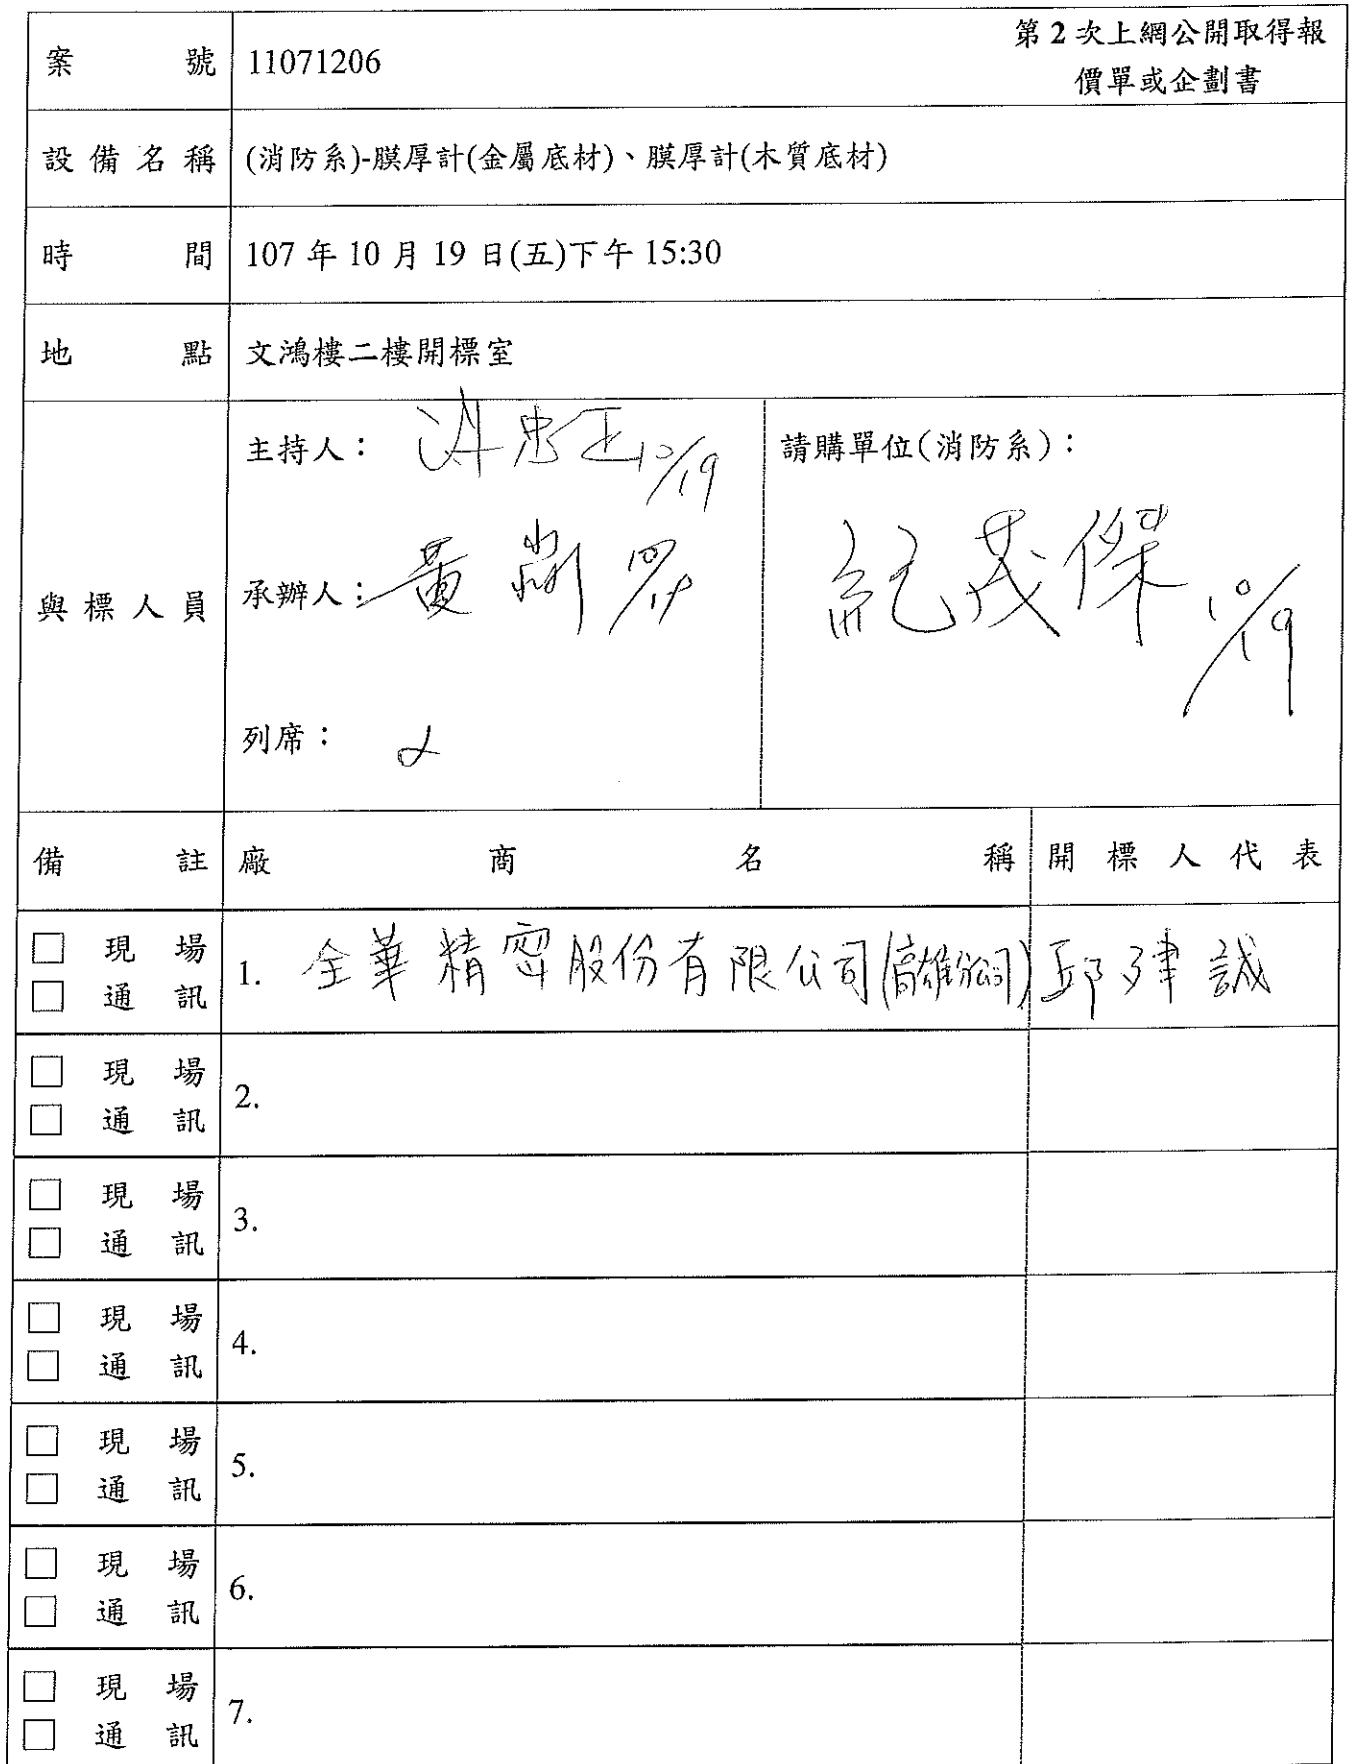 案號 11071206 第2次上網公開取得報
價單或企劃書
設備名稱 (消防系)-膜厚計(金屬底材)、膜厚計(木質底材)
時間 107年10月19日(五)下午15:30
地點 文鴻樓二樓開標室
與標人員
主持人： 洪忠正 10/19
請購單位(消防系)：
紀茂傑 10/19
承辦人： 黃
列席：
備註 廠商名稱 開標人代表
□ 現場
□ 通訊
1. 全華精密股份有限公司(高雄分公司) 邱建誠
□ 現場
□ 通訊
2.
□ 現場
□ 通訊
3.
□ 現場
□ 通訊
4.
□ 現場
□ 通訊
5.
□ 現場
□ 通訊
6.
□ 現場
□ 通訊
7.